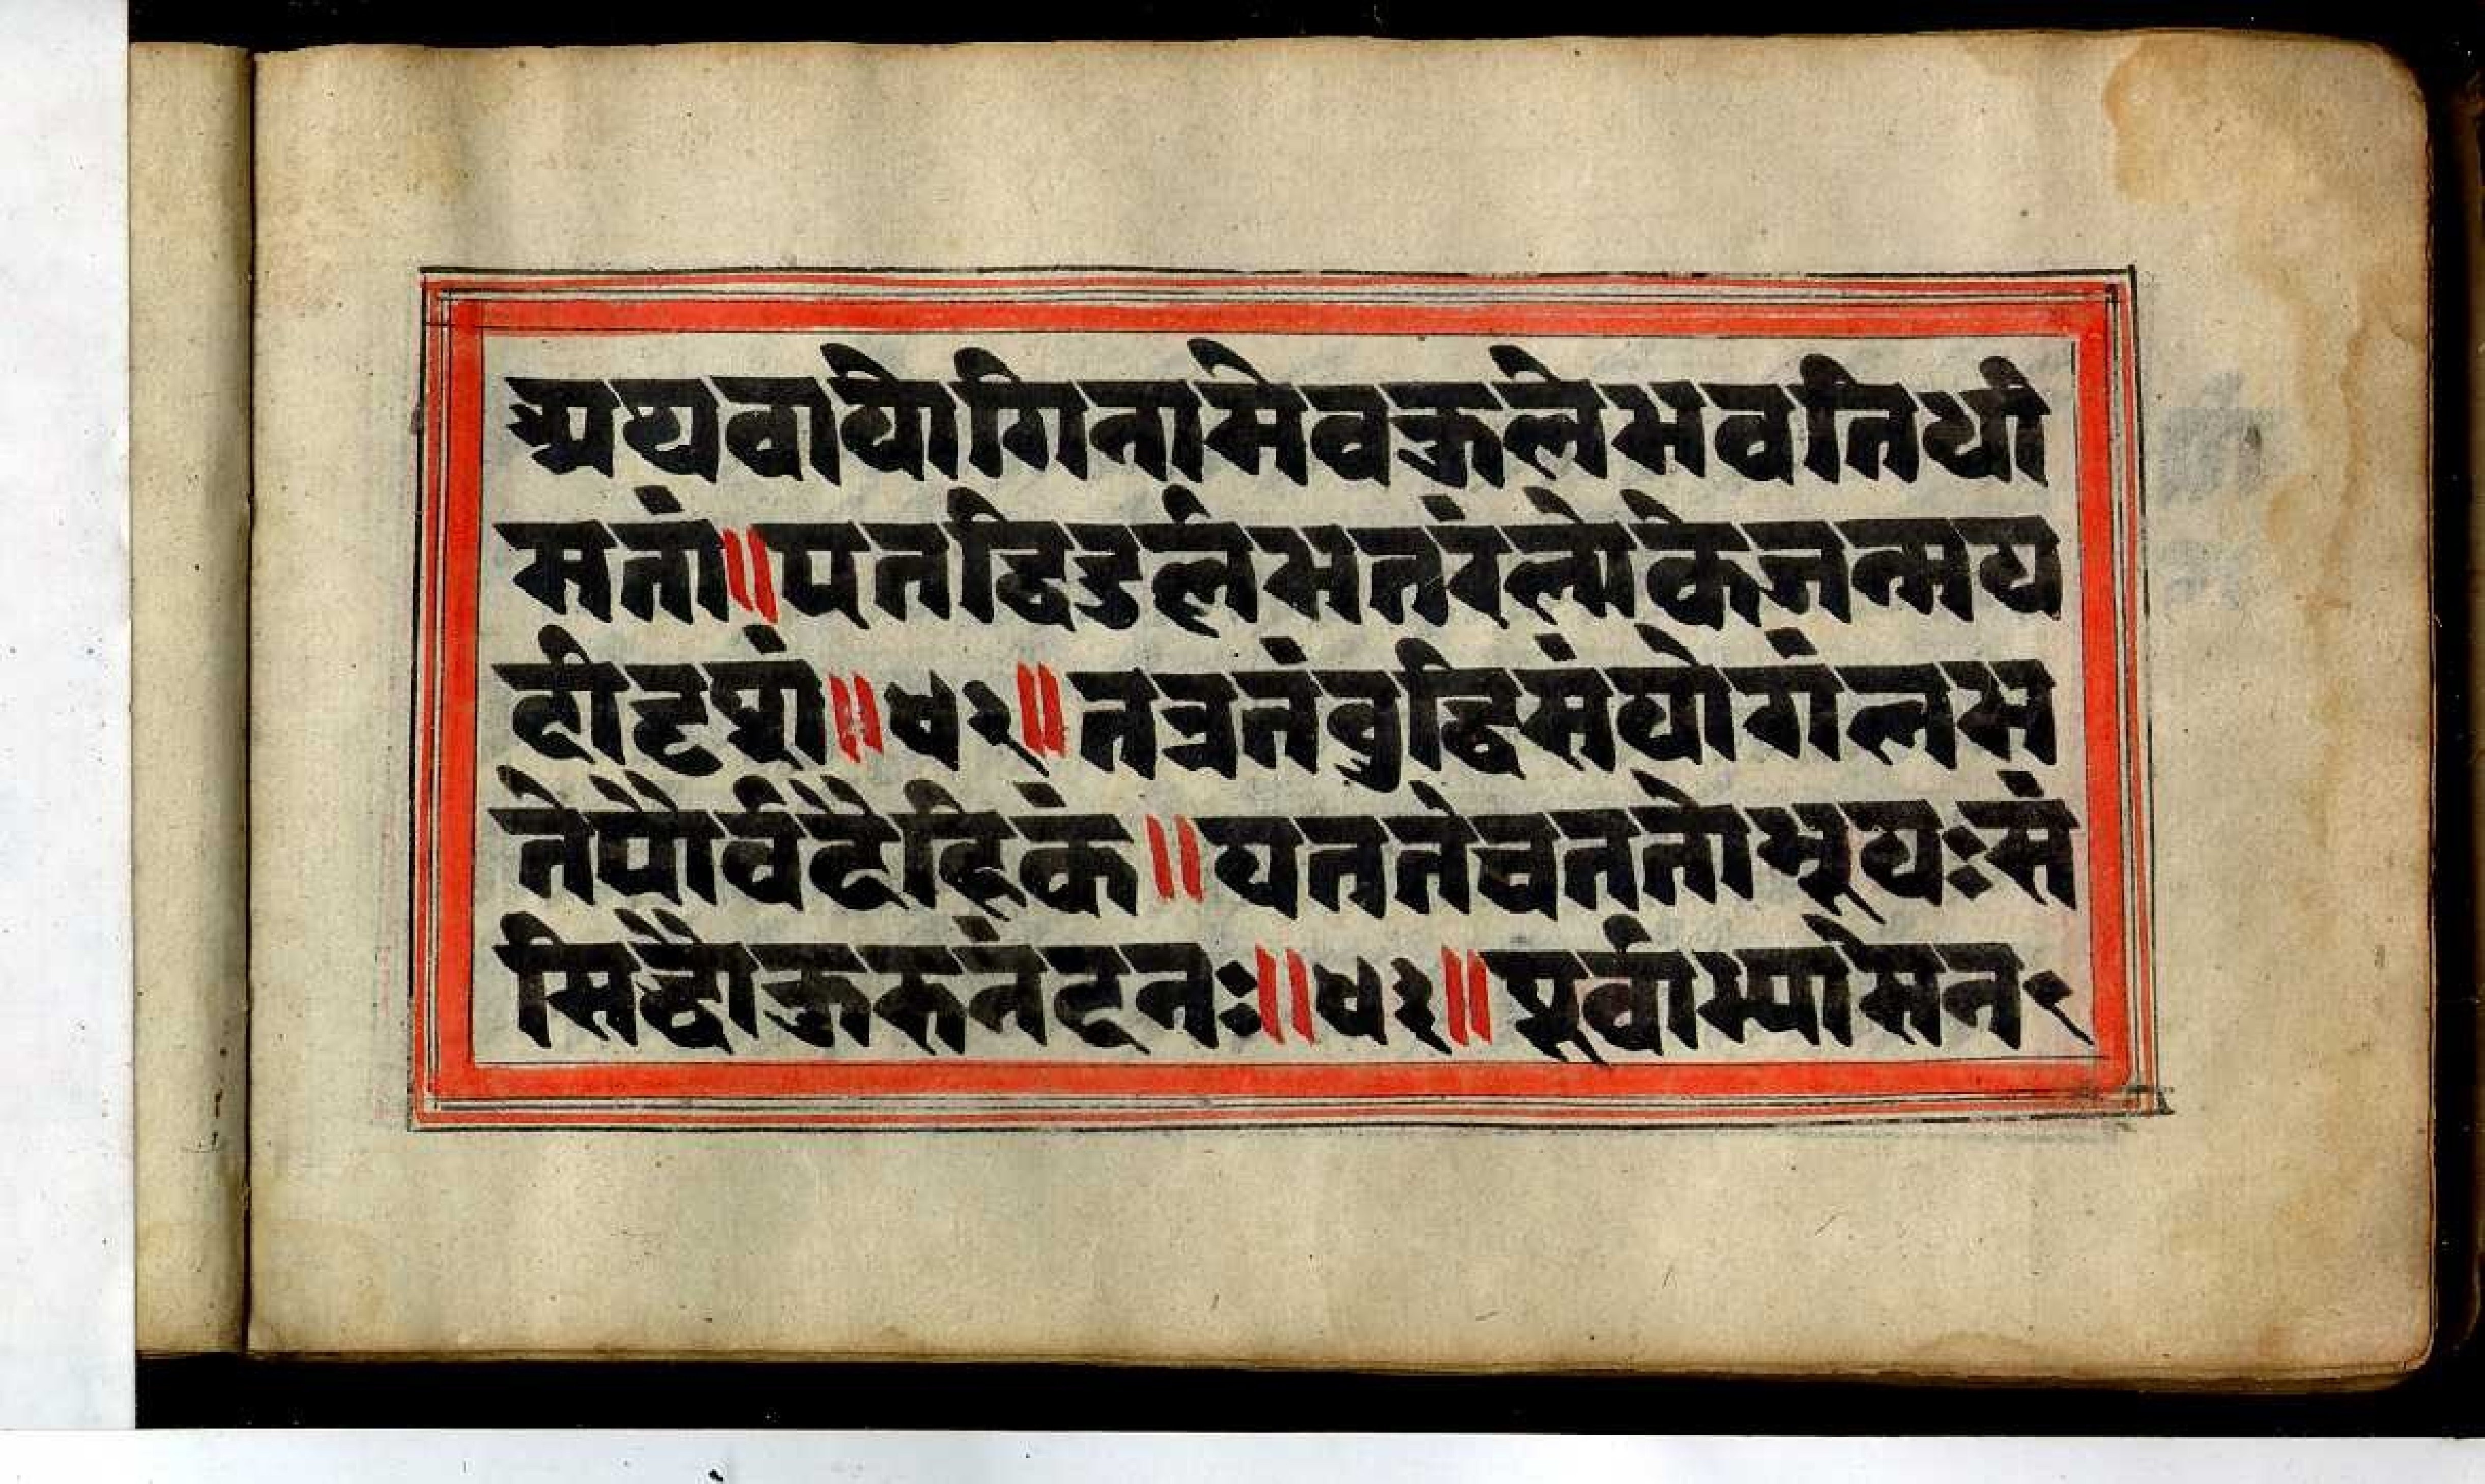 अथवायोगिनामेवकुलेभवतिधी
मतां॥एतद्धिदुर्लभतरंलोकेजन्मय
दीदृशां॥४२॥तत्रतंबुद्धिसंयोगंलभ
तेपौर्वदैहिकं॥यततेचततोभूयःसं
सिद्धौकुरुनंदनः॥४३॥पूर्वाभ्यासेन